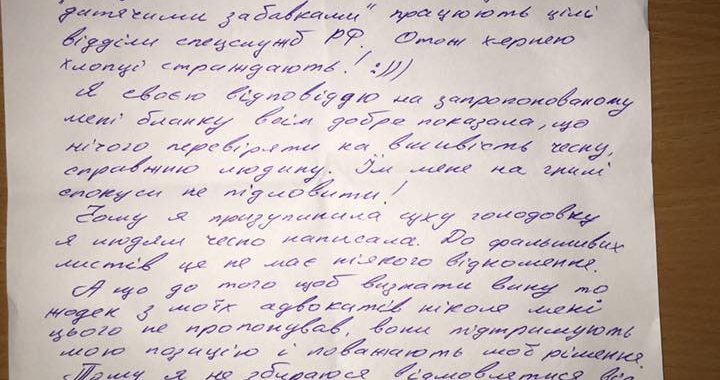 дитячими забавками" працюють цілі
відділи спецслужб РФ. Отож херньою
хлопці страждають! :)))
Я своєю відповіддю на запропонованому
мені бланку всім добре показала, що
нічого перевіряти на вшивість чесну,
справжню людину. Їм мене на гнилі
спокуси не підловити!
Чому я призупинила суху голодовку
я людям чесно написала. До фальшивих
листів це не має ніякого відношення.
А що до того щоб визнати вину то
жоден з моїх адвокатів ніколи мені
цього не пропонував, вони підтримують
мою позицію і поважають моє рішення.
Тому я не збираюся відмовлятися від